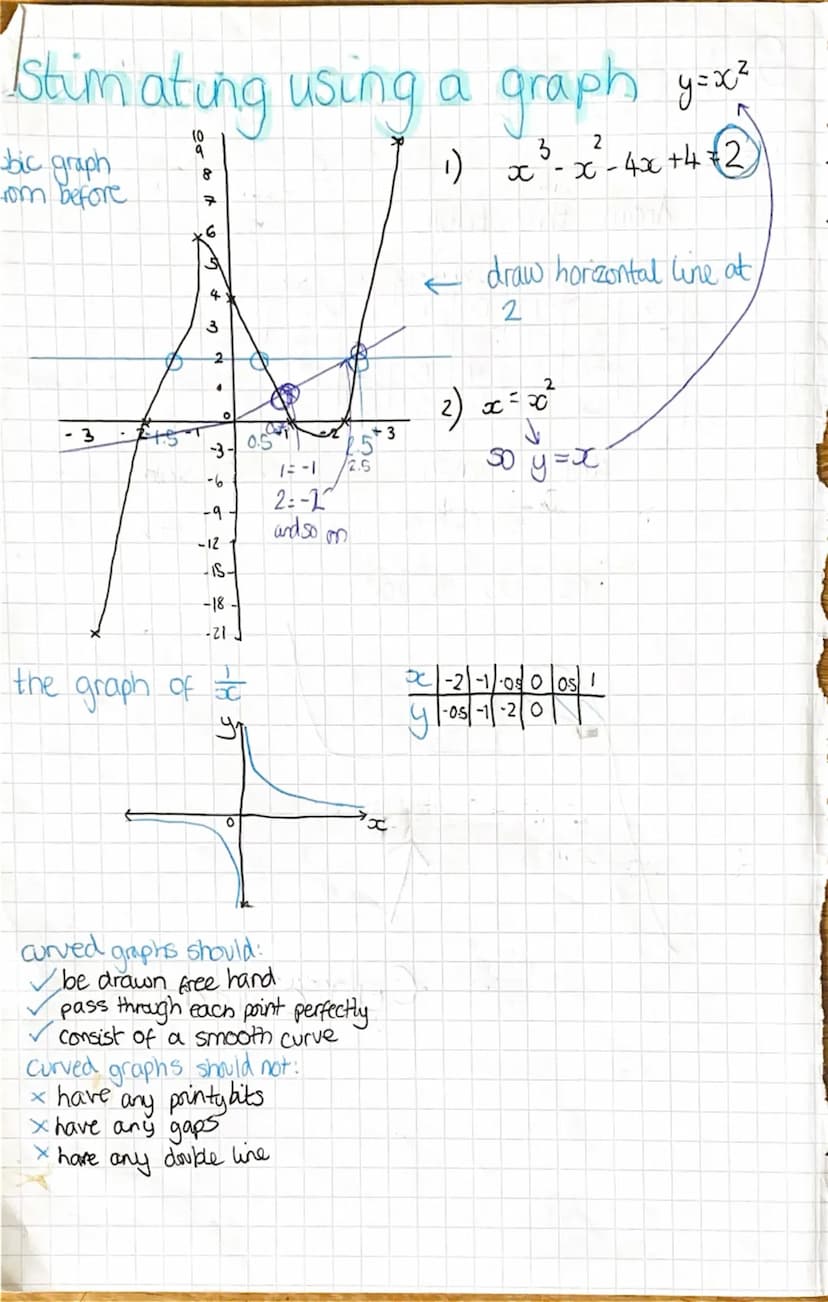 stimating using a graph y=x²
bic graph
rom before
10
9
8
7
6
5
4
3
2
1
0
-3 -2 -1.5 -1 0.5 +1 -2 2.5 +3
-3
-6
-9
-12
-15
-18
-21
1=-1
2.5
2=-2
and so on
1) x³-x²-4x+4=2
← draw horizontal line at
2
2) x=x²
so y=x
the graph of 1/x
x -2 -1 -0.5 0 0.5 1
y -0.5 -1 -2 0
y
0
x
curved graphs should:
✓ be drawn free hand
✓ pass through each point perfectly
✓ consist of a smooth curve
curved graphs should not:
× have any pointy bits
× have any gaps
× have any double line